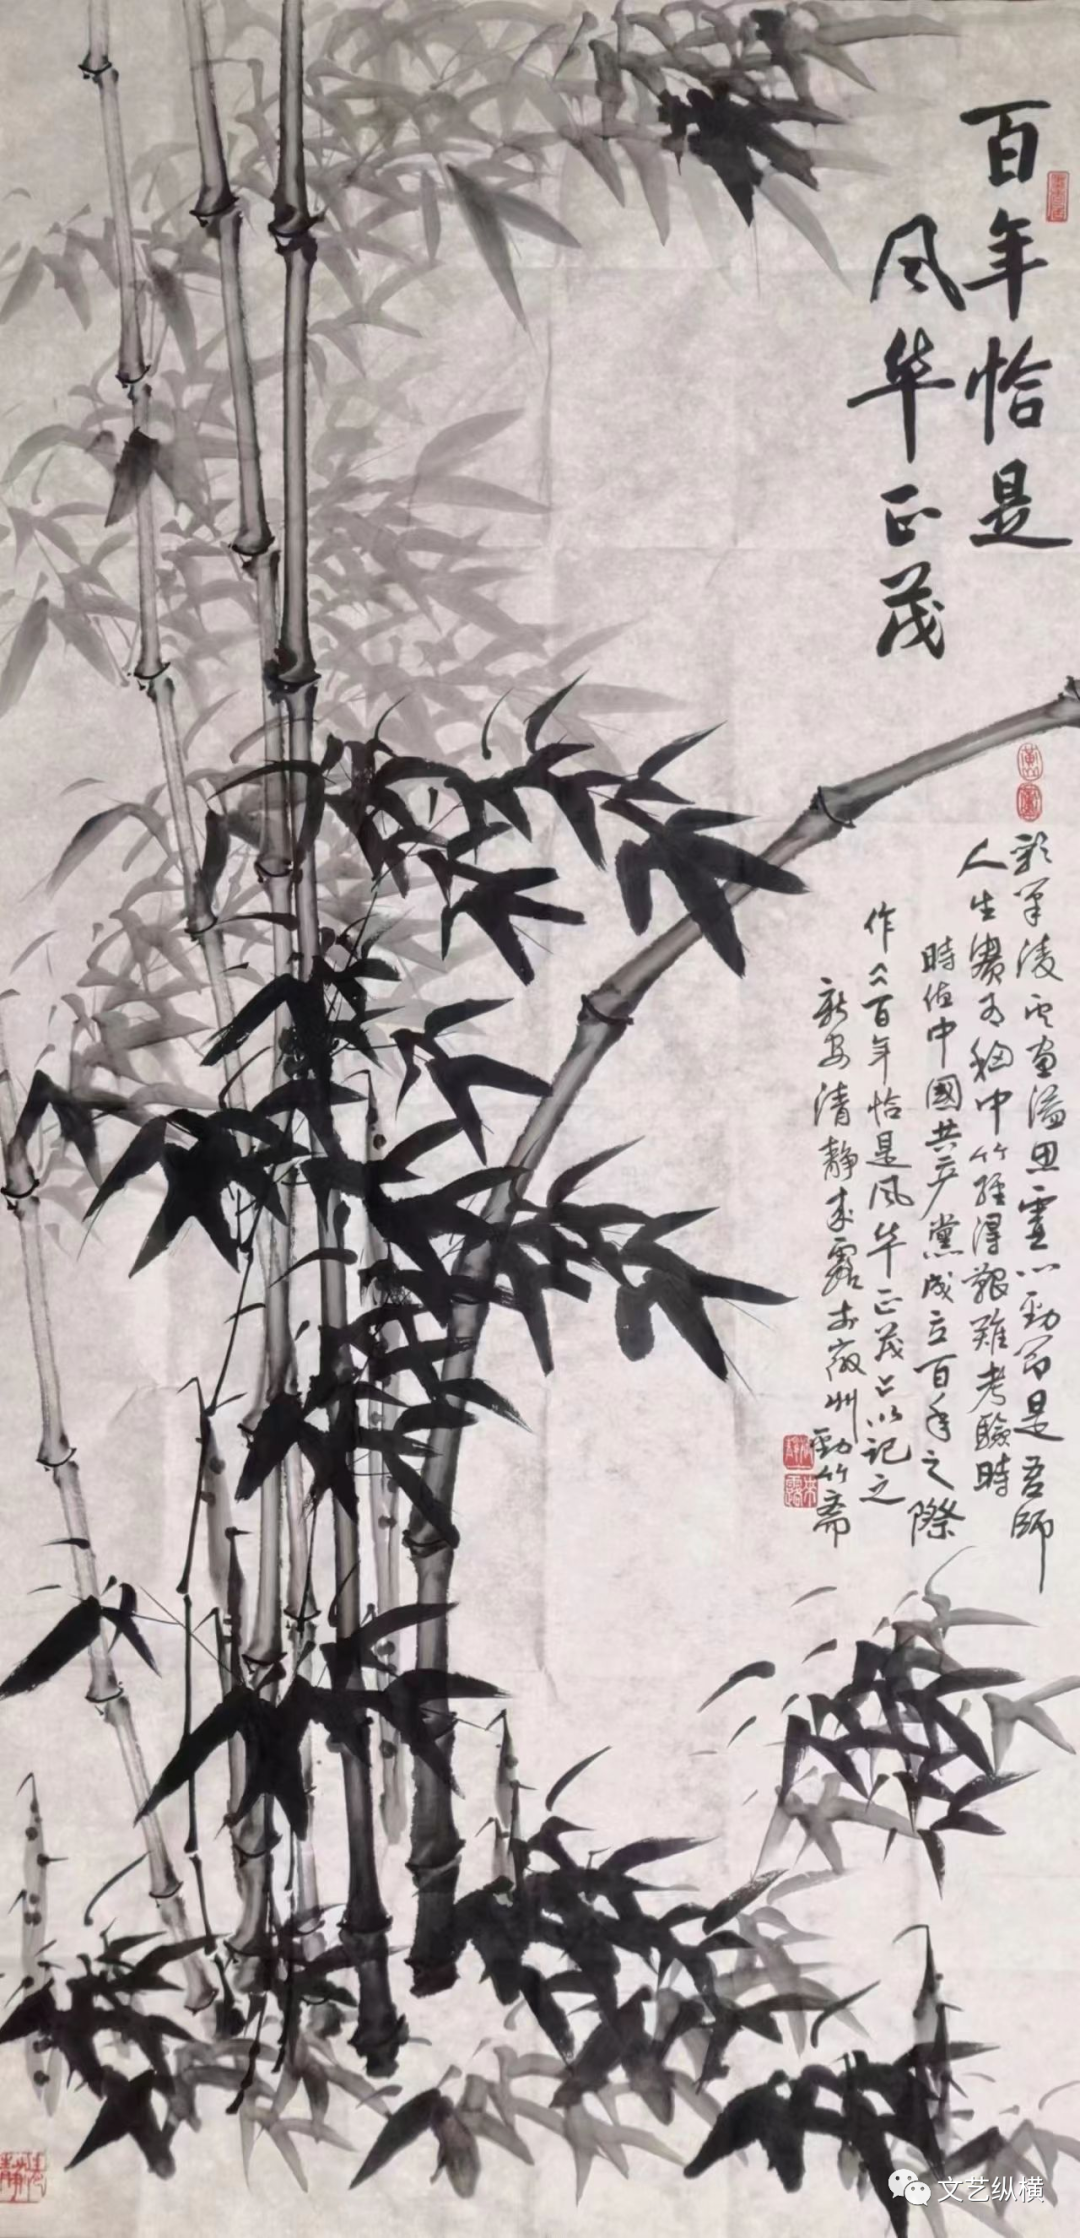 百年恰是
风华正茂
彩笔凌云画溢思虚心劲节是吾师
人生贵有胸中竹经得艰难考验时
時值中國共产黨成立百年之際
作《百年恰是风华正茂》以记之
新安清靜朱露於徽州劲竹斋
文艺纵横